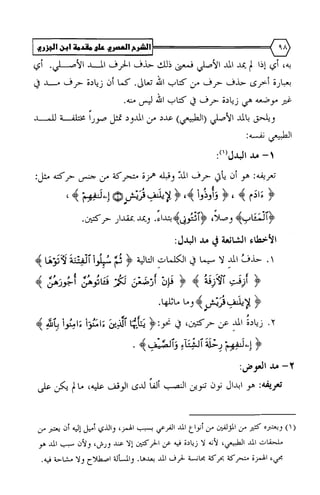 ٩٨ الشرح العصري على مقدمة ابن الجزري
به، أي إذا لم يمد المد الأصلي فمعنى ذلك حذف الحرف المد الأصلي. أي
بعبارة أخرى حذف حرف من كتاب الله تعالى. كما أن زيادة حرف مد في
غير موضعه هي زيادة حرف في كتاب الله ليس منه.
ويلحق بالمد الأصلي (الطبيعي) عدد من المدود تمثل صوراً مختلفة للمد
الطبيعي نفسه:
١- مد البدل(١):
تعريفه: هو أن يأتي حرف المدّ وقبله همزة متحركة من جنس حركته مثل:
﴿ءَادَم﴾، ﴿وَأُوذُوا﴾، ﴿لِإِيلَٰفِ قُرَيْشٍ ۝ إِۦلَٰفِهِمْ﴾،
﴿الْمَـَٔابِ﴾ وصلاً، ﴿ائْتُونِي﴾ ابتداءً. ويمد بمقدار حركتين.
الأخطاء الشائعة في مد البدل:
١. حذفُ المدِ لا سيما في الكلمات التالية ﴿ثُمَّ سُئِلُوا الْفِتْنَةَ لَآتَوْهَا﴾
﴿أَزِفَتِ الْآزِفَةُ﴾ ﴿فَإِنْ أَرْضَعْنَ لَكُمْ فَآتُوهُنَّ أُجُورَهُنَّ﴾
﴿لِإِيلَٰفِ قُرَيْشٍ﴾ وما ماثلها.
٢. زيادةُ المدِ عن حركتين، في نحو: ﴿يَٰٓأَيُّهَا الَّذِينَ ءَامَنُوٓا ءَامِنُوا بِاللَّهِ﴾
﴿إِۦلَٰفِهِمْ رِحْلَةَ الشِّتَآءِ وَالصَّيْفِ﴾.
٢- مد العوض:
تعريفه: هو ابدال نون تنوين النصب ألفاً لدى الوقف عليه، ما لم يكن على
(١) ويعتبره كثير من المؤلفين من أنواع المد الفرعي بسبب الهمز، والذي أميل إليه أن يعتبر من
ملحقات المد الطبيعي، لأنه لا زيادة فيه عن الحركتين إلا عند ورش، ولأن سبب المد هو
مجيء الهمزة متحركة بحركة مجانسة لحرف المد بعدها. والمسألة اصطلاح ولا مشاحة فيه.